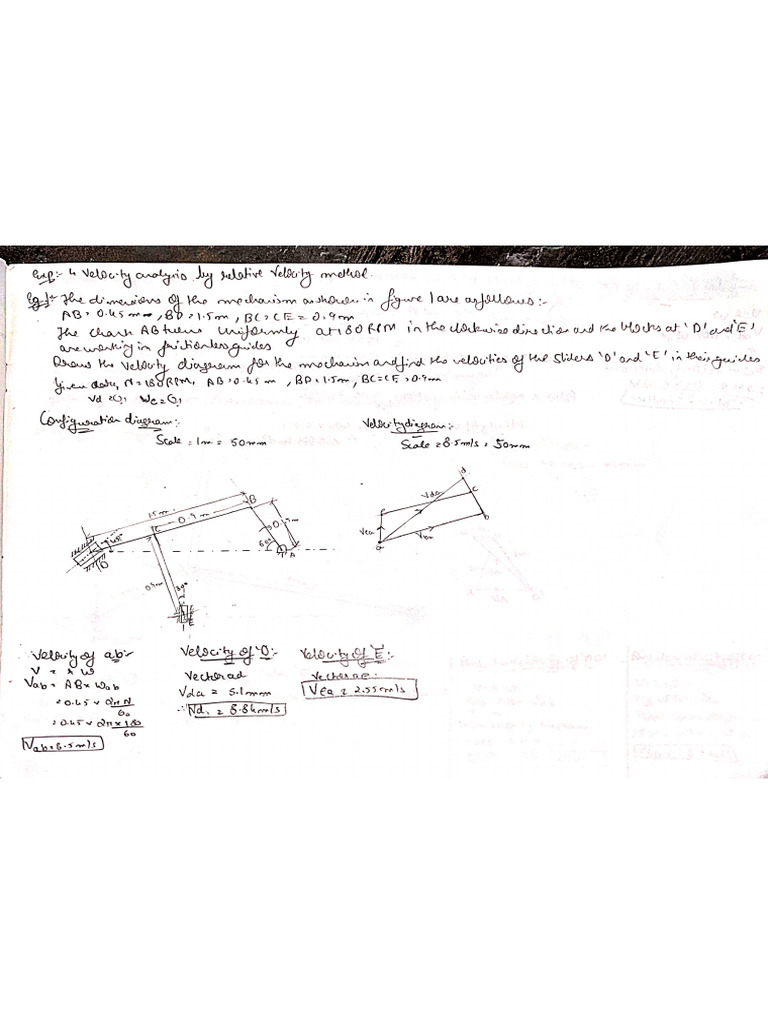 Exp:- 4 Velocity analysis by relative velocity method.
Eg:1:- The dimensions of the mechanism as shown in figure 1 are as follows:-
AB = 0.45 m, BD = 1.5m, BC = CE = 0.9m
The crank AB turns uniformly at 180 RPM in the clockwise direction and the blocks at 'D' and 'E'
are working in frictionless guides
Draw the velocity diagram for the mechanism and find the velocities of the sliders 'D' and 'E' in their guides
Given data, N = 180 RPM, AB = 0.45 m, BD = 1.5m, BC = CE = 0.9m
Vd = ?, Ve = ?
Configuration diagram:-
Scale = 1m = 50mm
Velocity diagram:-
Scale = 8.5m/s = 50mm
1.5m
0.9m
B
C
45°
D
60°
A
0.9m
30°
E
d
c
b
a
Vda
Vea
Vba
Velocity of ab:-
V = r ω
Vab = AB × ωab
= 0.45 × 2πN/60
= 0.45 × 2π×180/60
Vab = 8.5m/s
Velocity of 'D':-
Vector ad
Vda = 5.1mm
∴ Vd = 8.84m/s
Velocity of 'E':-
Vector ae:
Vea = 2.55m/s